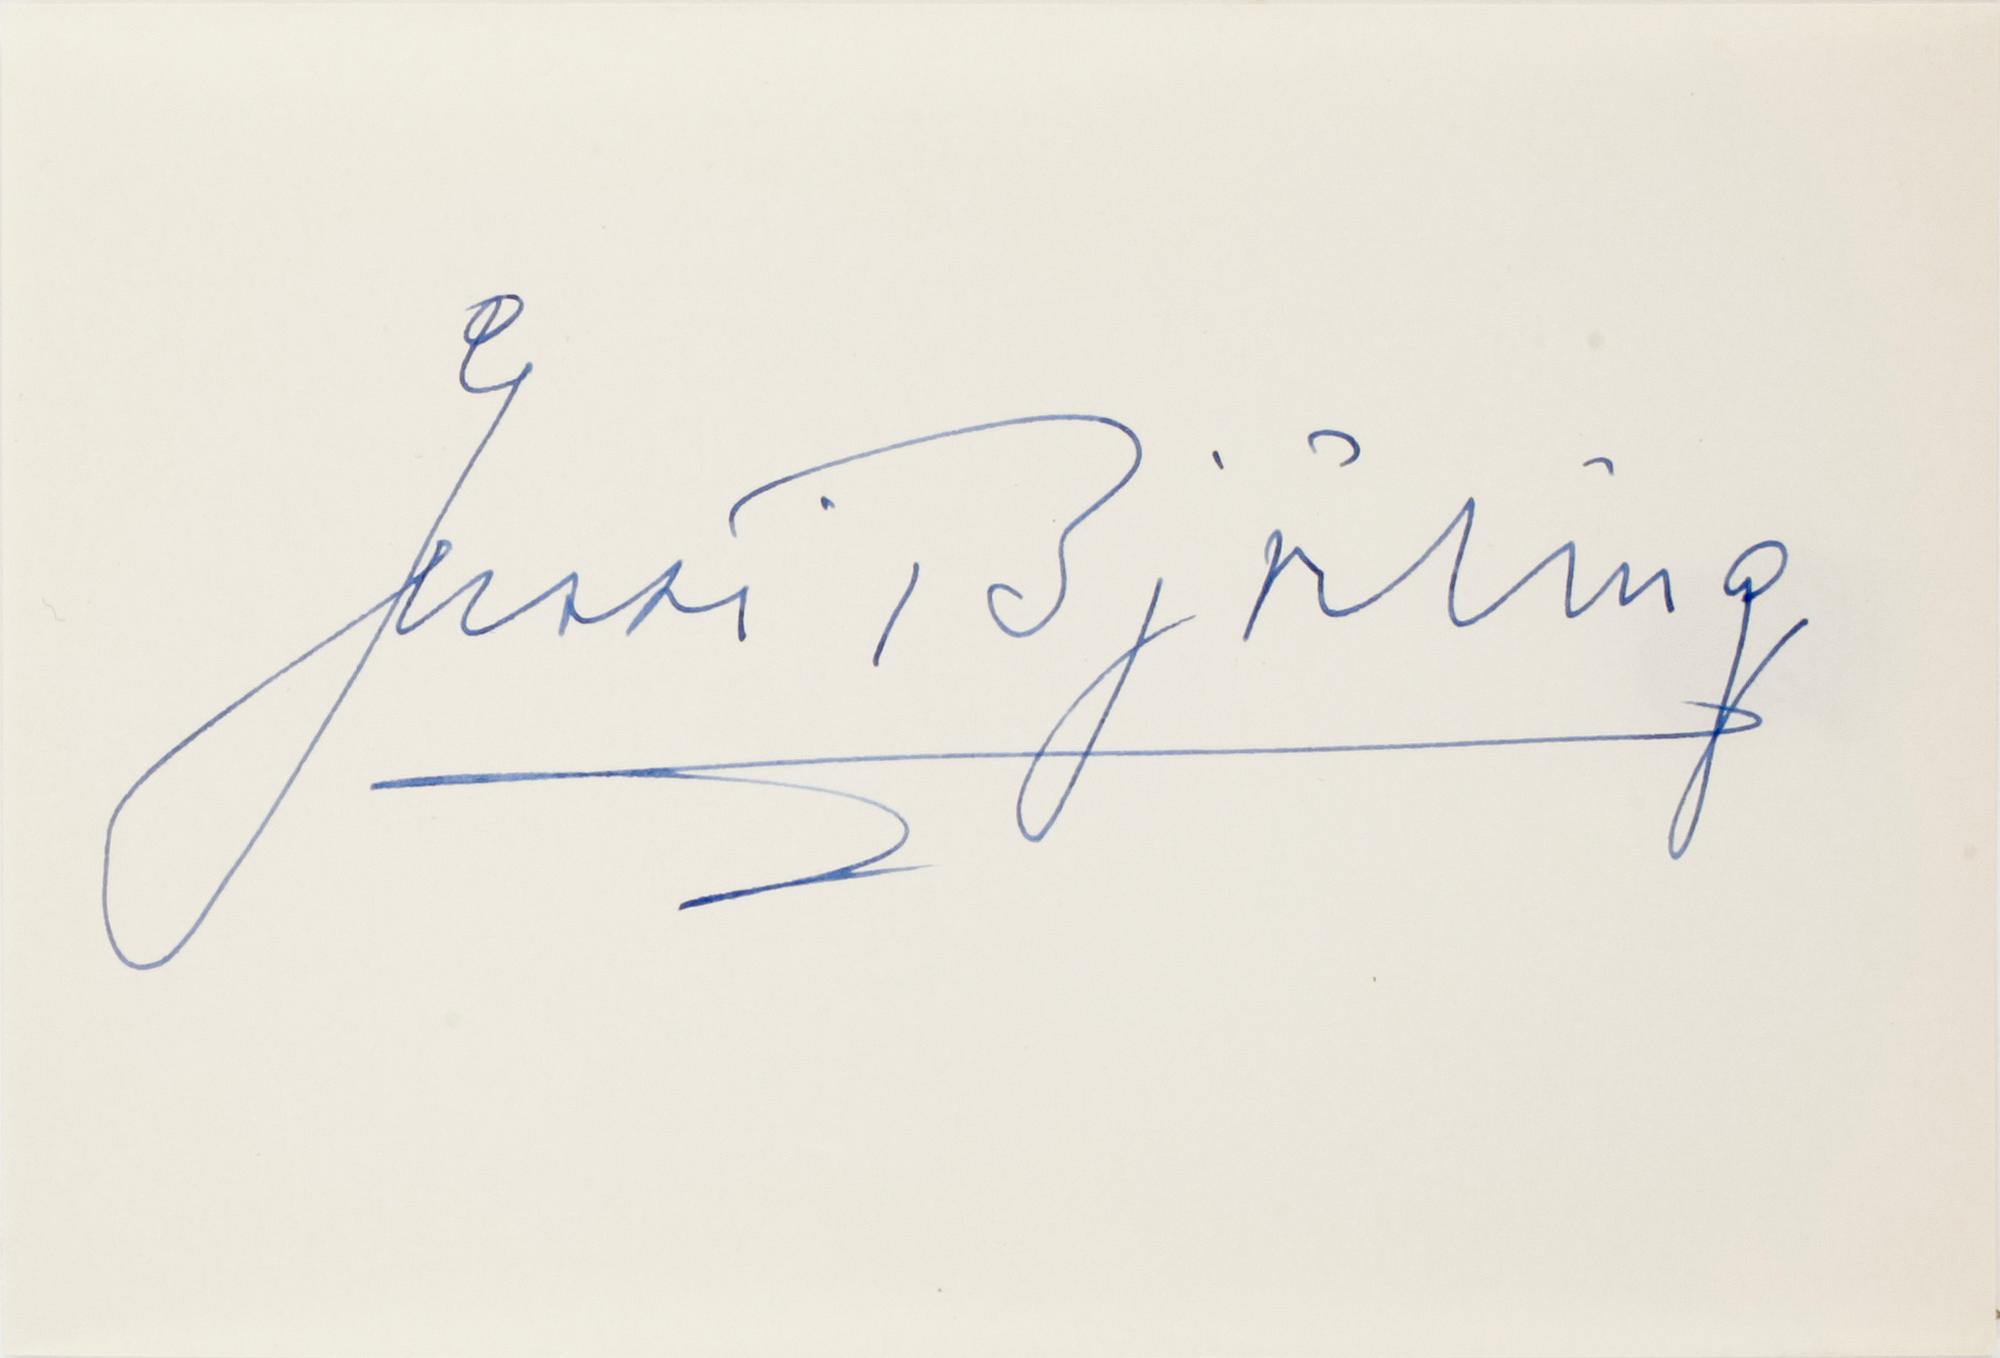 Jussi Björling